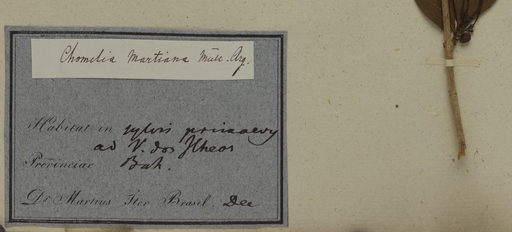 Chomelia Martiana Müll. Arg.
Habitat in sylvis primaevis
ad V. dos Ilheos
Provinciae Bah.
Dr. Martius Iter Brasil. Dec